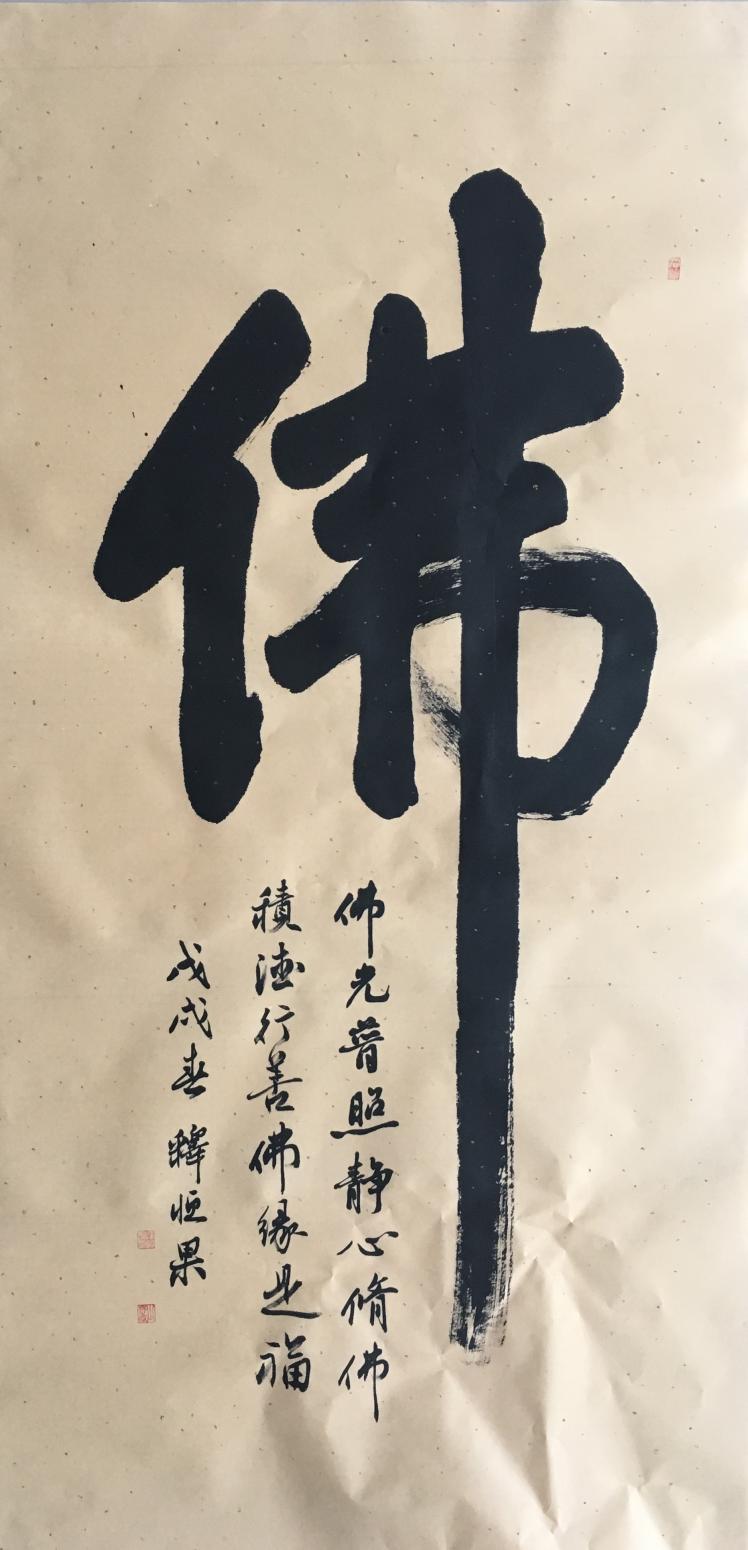 佛
佛光普照静心脩佛
積德行善佛缘是福
戊戌春 釋恒果